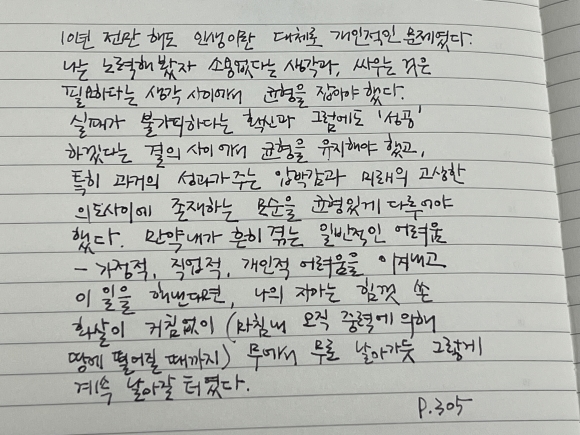 10년 전만 해도 인생이란 대체로 개인적인 문제였다.
나는 노력해 봤자 소용없다는 생각과, 싸우는 것은
필요하다는 생각 사이에서 균형을 잡아야 했다.
실패가 불가피하다는 확신과 그럼에도 '성공'
하겠다는 결의 사이에서 균형을 유지해야 했고,
특히 과거의 성과가 주는 압박감과 미래의 고상한
의도사이에 존재하는 모순을 균형있게 다루어야
했다. 만약 내가 흔히 겪는 일반적인 어려움
- 가정적, 직업적, 개인적 어려움을 이겨내고
이 일을 해낸다면, 나의 자아는 힘껏 쏜
화살이 거침없이 (마침내 오직 중력에 의해
땅에 떨어질 때까지) 무에서 무로 날아가듯 그렇게
계속 날아갈 터였다.
P.305